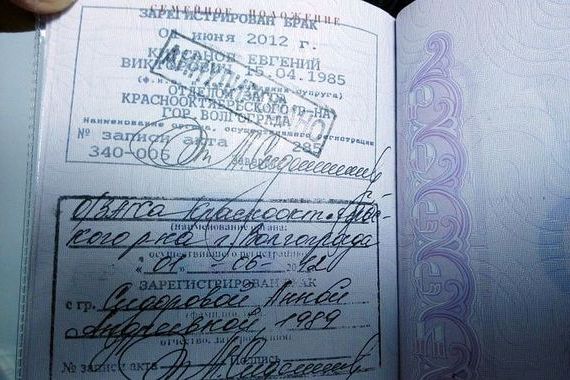 СЕМЕЙНОЕ ПОЛОЖЕНИЕ
ЗАРЕГИСТРИРОВАН БРАК
01 июня 2012 г.
ЕВГЕНИЙ
15.04.1985
ОТДЕЛОМ
КРАСНООКТЯБРЬСКОГО Р-НА
ГОР. ВОЛГОГРАДА
наименование органа, осуществившего регистрации
№ записи акта 285
340-006
ОЗАГСа Краснооктябрь-
(наименование органа:
кого р-на г. Волгограда
осуществившего регистрацию
«01» -06- 2012
ЗАРЕГИСТРИРОВАН БРАК
с гр. Сидоровой Анной
Андреевной, 1989
отчество, дата рождения
№ записи акта Подпись